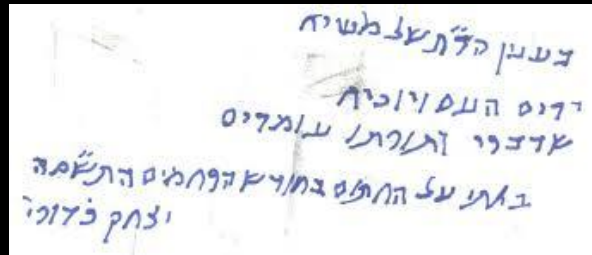 בענין הר"ת של משיח
ירים העם ויוכיח
שדברו ותורתו עומדים
באתי על החתום בחודש הרחמים התשס"ה
יצחק כדורי